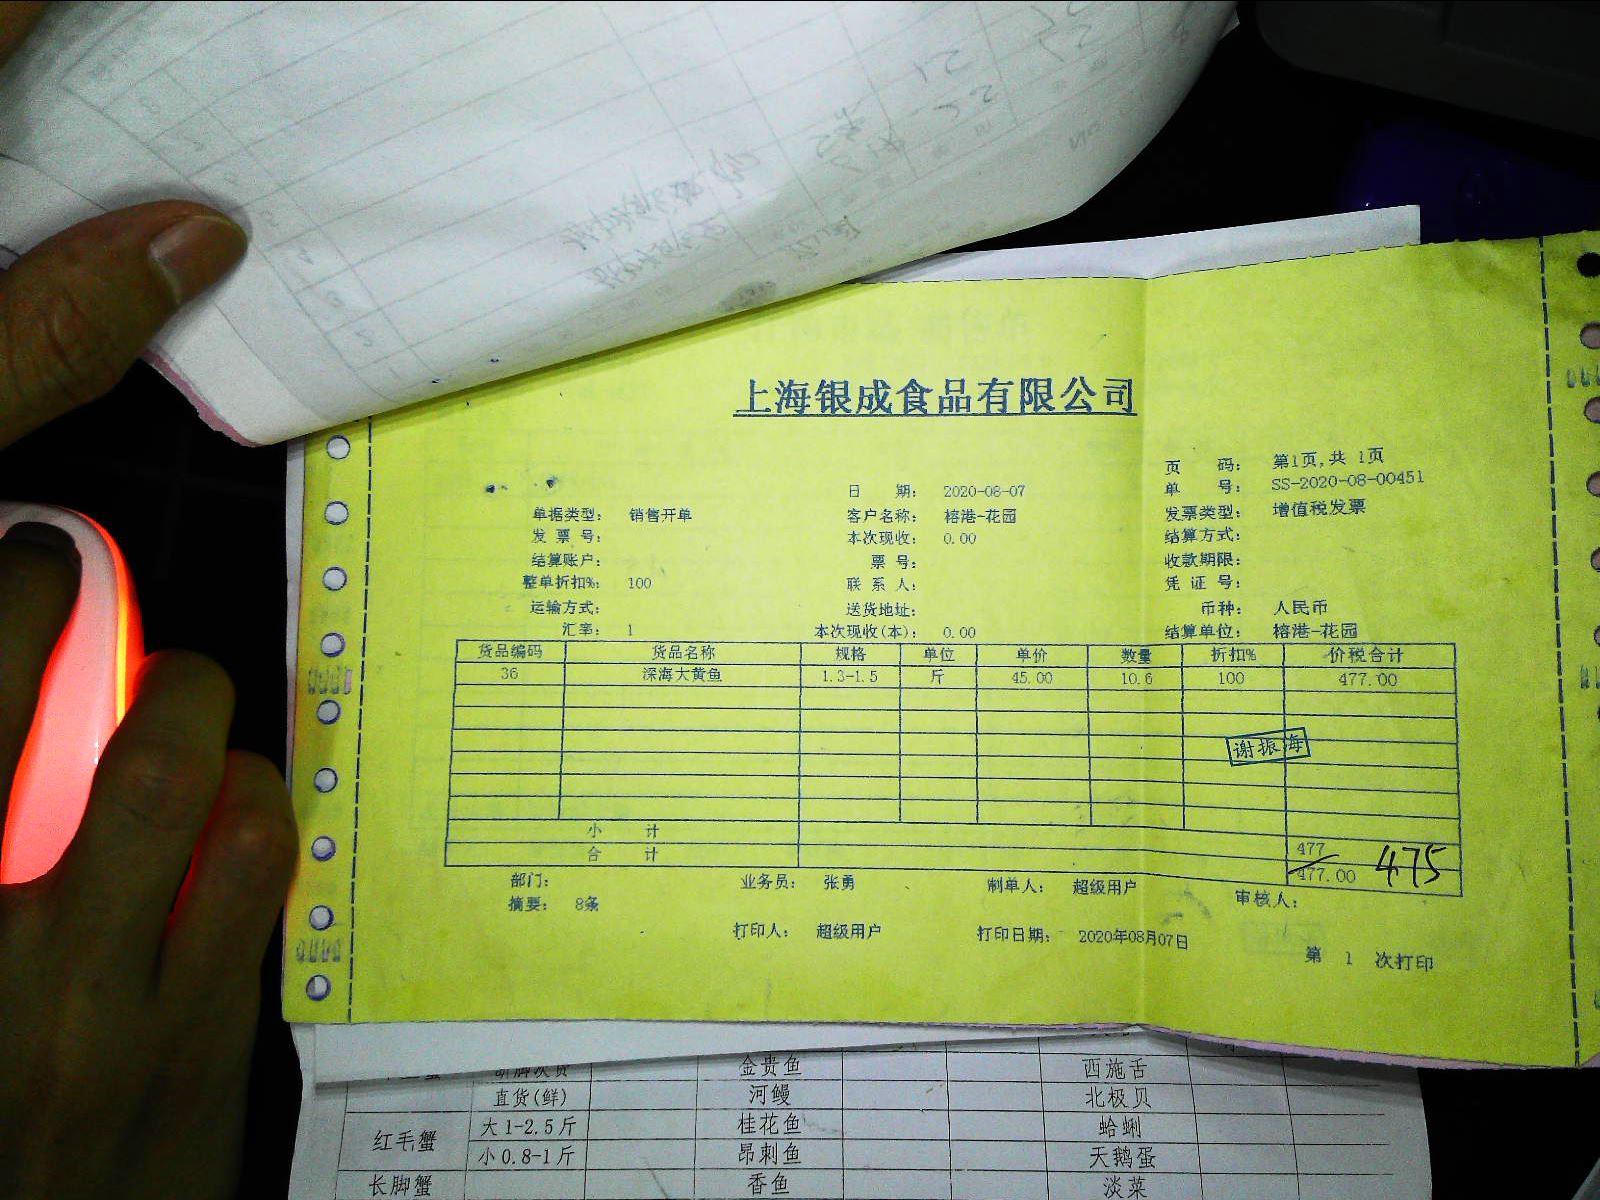 上海银成食品有限公司
页 码： 第1页,共 1页
日 期： 2020-08-07 单 号： SS-2020-08-00451
单据类型： 销售开单 客户名称： 榕港-花园 发票类型： 增值税发票
发 票 号： 本次现收： 0.00 结算方式：
结算账户： 票 号： 收款期限：
整单折扣%： 100 联 系 人： 凭 证 号：
运输方式： 送货地址： 币种： 人民币
汇率： 1 本次现收(本)： 0.00 结算单位： 榕港-花园
货品编码 货品名称 规格 单位 单价 数量 折扣% 价税合计
36 深海大黄鱼 1.3-1.5 斤 45.00 10.6 100 477.00
谢振海
小 计 477
合 计 477.00 475
部门： 业务员： 张勇 制单人： 超级用户 审核人：
摘要： 8条
打印人： 超级用户 打印日期： 2020年08月07日 第 1 次打印
金贵鱼 西施舌
直货(鲜) 河鳗 北极贝
红毛蟹 大1-2.5斤 桂花鱼 蛤蜊
小0.8-1斤 昂刺鱼 天鹅蛋
长脚蟹 香鱼 淡菜